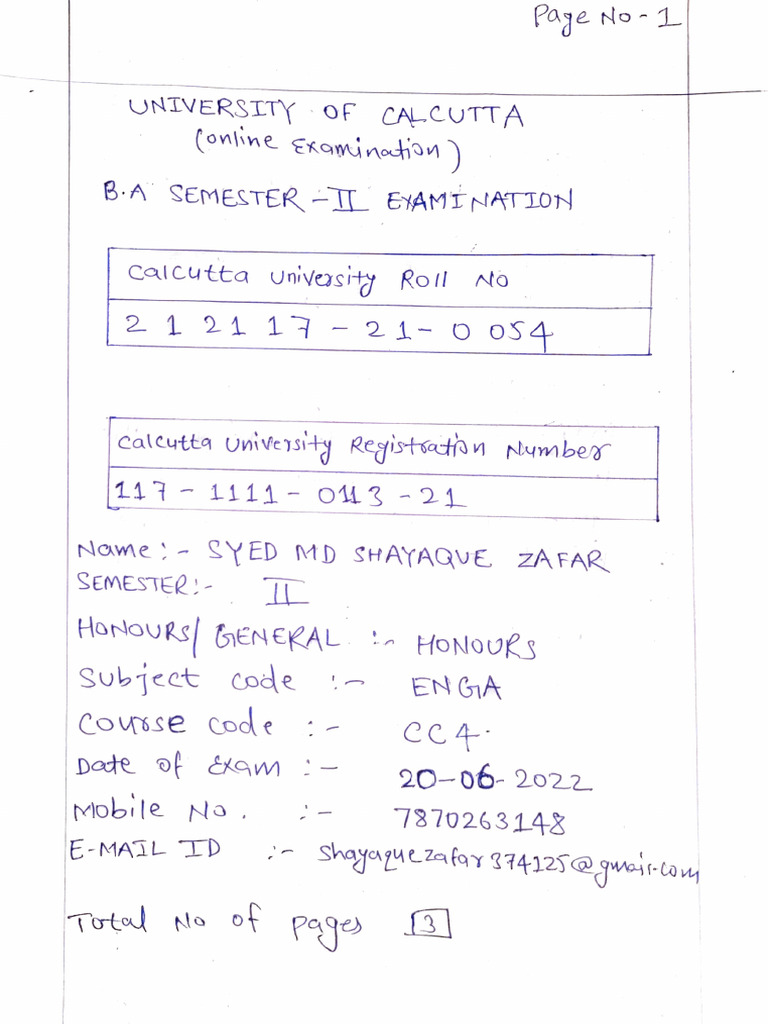 Page No - 1
UNIVERSITY OF CALCUTTA
(online Examination)
B.A SEMESTER - II EXAMINATION
Calcutta University Roll No
2 1 2 1 1 7 - 2 1 - 0 0 5 4
Calcutta University Registration Number
117 - 1111 - 0113 - 21
Name :- SYED MD SHAYAQUE ZAFAR
SEMESTER :- II
HONOURS/ GENERAL :- HONOURS
Subject code :- ENGA
Course code :- CC4.
Date of Exam :- 20-06-2022
Mobile No. :- 7870263148
E-MAIL ID :- shayaquezafar374125@gmail.com
Total No of pages 3